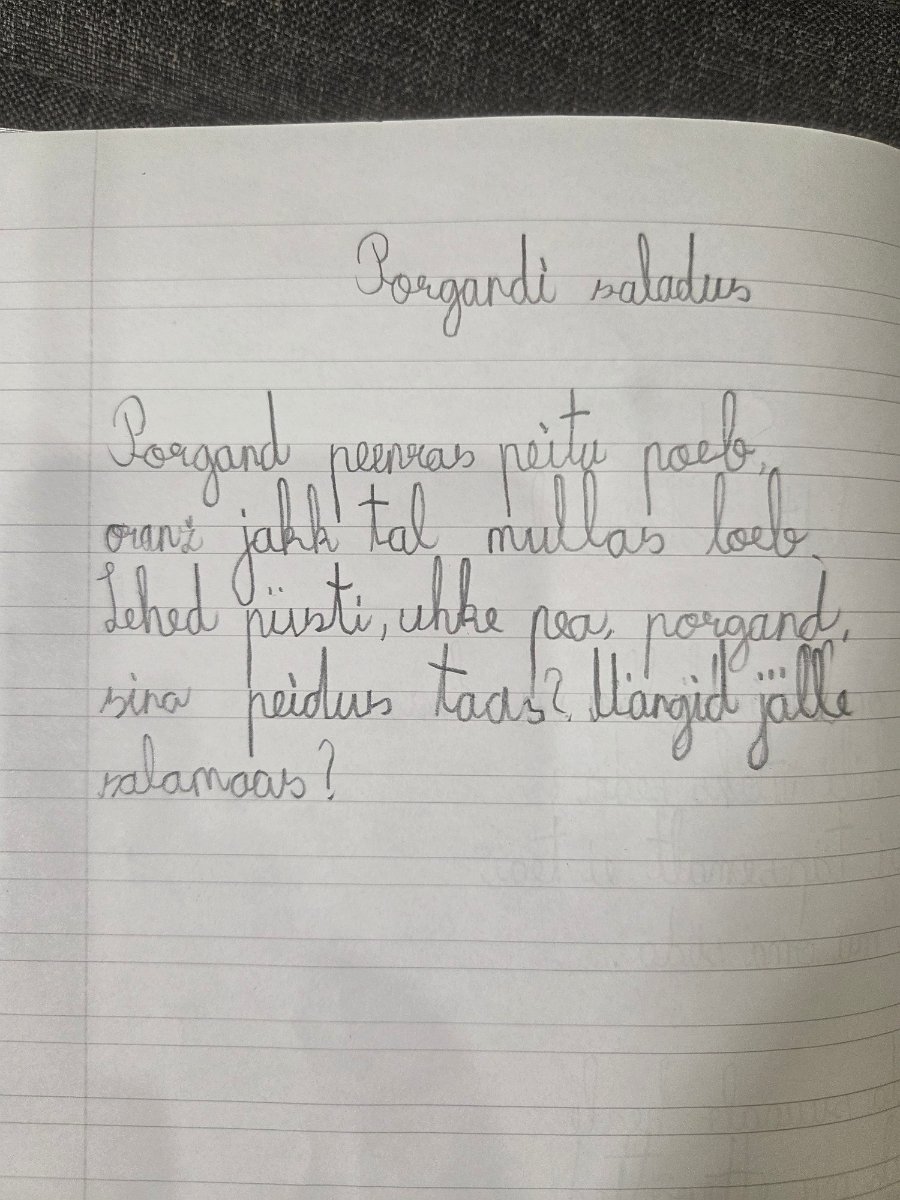 Porgandi saladus
Porgand peenras peitu poeb,
oranž jakk tal mullas loeb.
Lehed püsti, uhke pea, porgand,
sina peidus taas? Mängid jälle
salamaas?